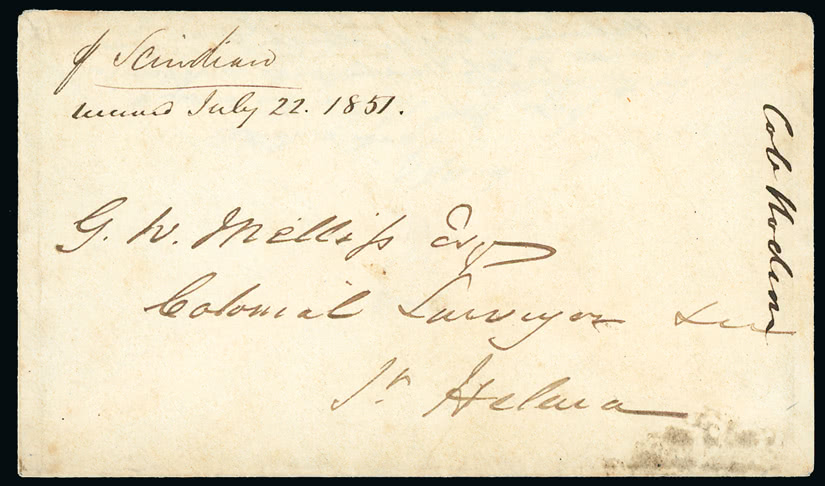 p Scindian
July 22. 1851.
G. W. Melliss Esqr
Colonial Surveyor &c &c
St Helena
Col Hodson